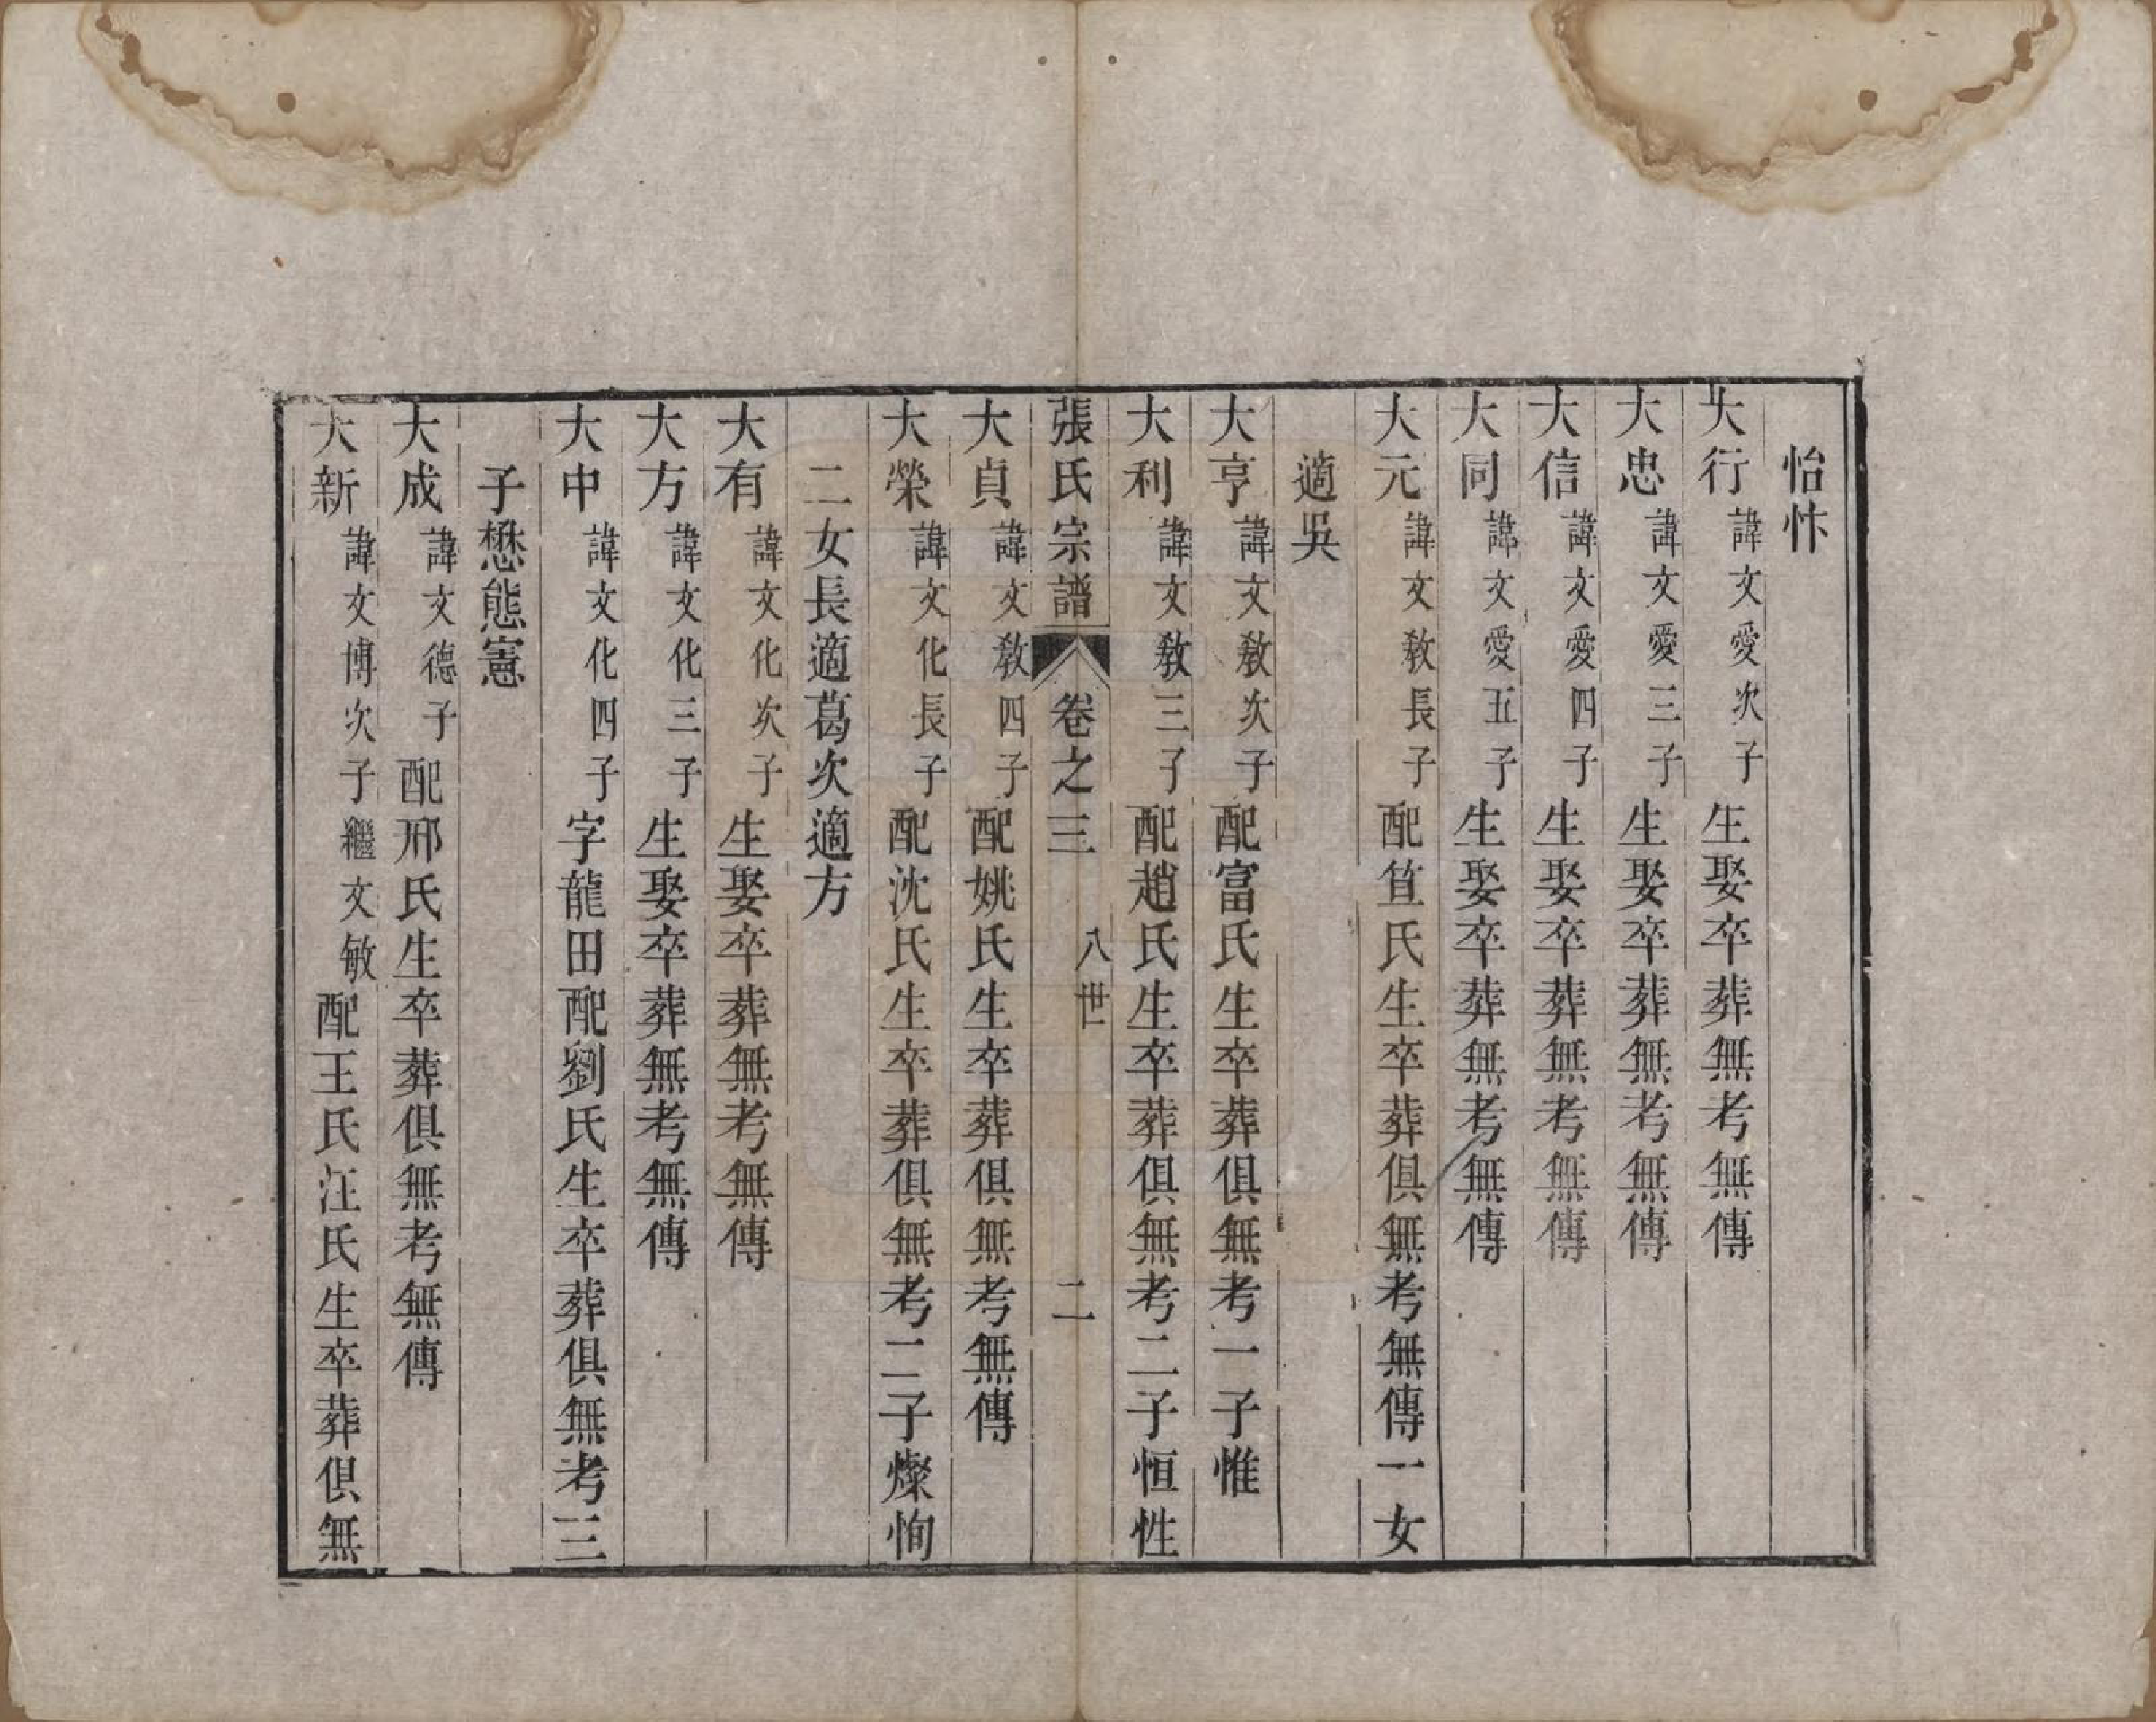 怡忭
大行諱文愛次子生娶卒葬無考無傳
大忠諱文愛三子生娶卒葬無考無傳
大信諱文愛四子生娶卒葬無考無傳
大同諱文愛五子生娶卒葬無考無傳
大元諱文敎長子配笪氏生卒葬俱無考無傳一女
適吳
大亨諱文敎次子配富氏生卒葬俱無考一子惟
大利諱文敎三子配趙氏生卒葬俱無考二子恒性
張氏宗譜 卷之三 八世 二
大貞諱文敎四子配姚氏生卒葬俱無考無傳
大榮諱文化長子配沈氏生卒葬俱無考二子燦恂
二女長適葛次適方
大有諱文化次子生娶卒葬無考無傳
大方諱文化三子生娶卒葬無考無傳
大中諱文化四子字龍田配劉氏生卒葬俱無考三
子懋態憲
大成諱文德子配邢氏生卒葬俱無考無傳
大新諱文博次子繼文敏配王氏汪氏生卒葬俱無